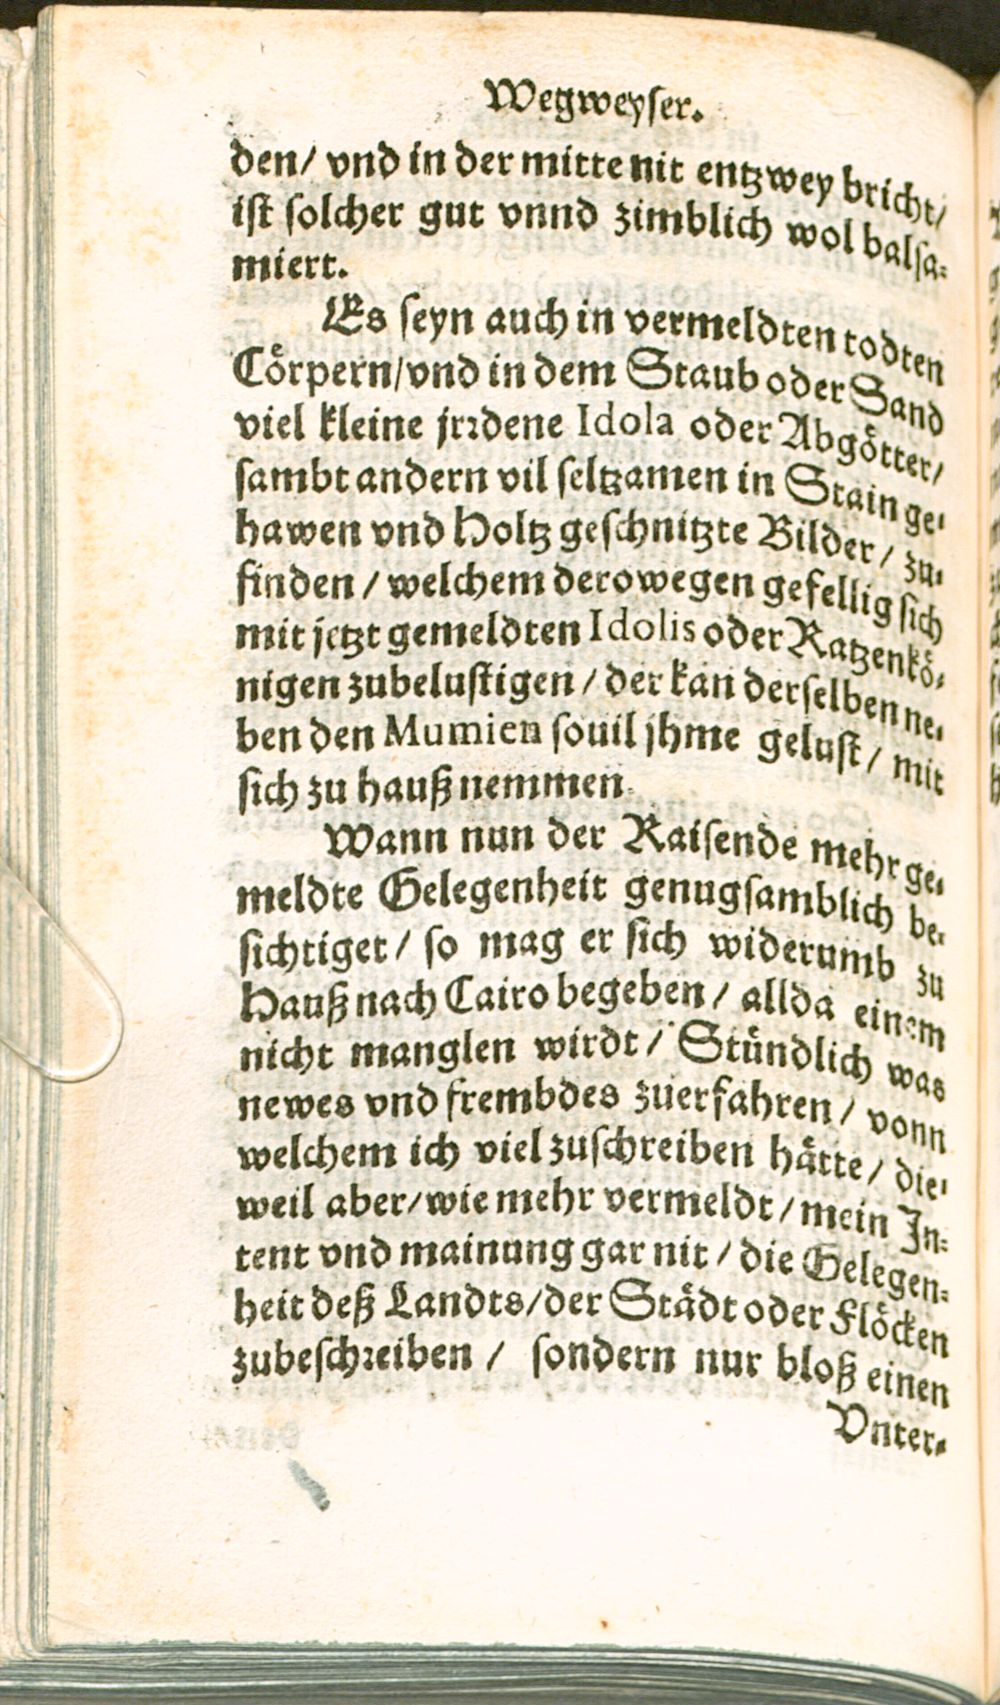 Wegweyser.
den/ vnd in der mitte nit entzwey bricht/
ist solcher gut vnnd zimblich wol balsa-
miert.
Es seyn auch in vermeldten todten
Cörpern/vnd in dem Staub oder Sand
viel kleine jrꝛdene Idola oder Abgötter/
sambt andern vil seltzamen in Stain ge-
hawen vnd Holtz geschnitzte Bilder/ zu-
finden/ welchem derowegen gefellig sich
mit jetzt gemeldten Idolis oder Ratzenkö-
nigen zubelustigen/ der kan derselben ne-
ben den Mumien souil jhme gelust/ mit
sich zu hauß nemmen.
Wann nun der Raisende mehr ge-
meldte Gelegenheit genugsamblich be-
sichtiget/ so mag er sich widerumb zu
Hauß nach Cairo begeben/ allda einem
nicht manglen wirdt/ Stündlich was
newes vnd frembdes zuerfahren/ vonn
welchem ich viel zuschreiben hätte/ die-
weil aber/wie mehr vermeldt/ mein In-
tent vnd mainung gar nit/ die Gelegen-
heit deß Landts/der Städt oder Flöcken
zubeschꝛeiben/ sondern nur bloß einen
Vnter-